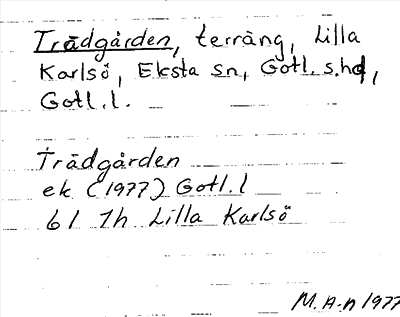 Trädgården, terräng, Lilla
Karlsö, Eksta sn, Gotl. s. hd,
Gotl. l.
Trädgården
ek (1977) Gotl. l
6 I 1h Lilla Karlsö
M. A-n 1977